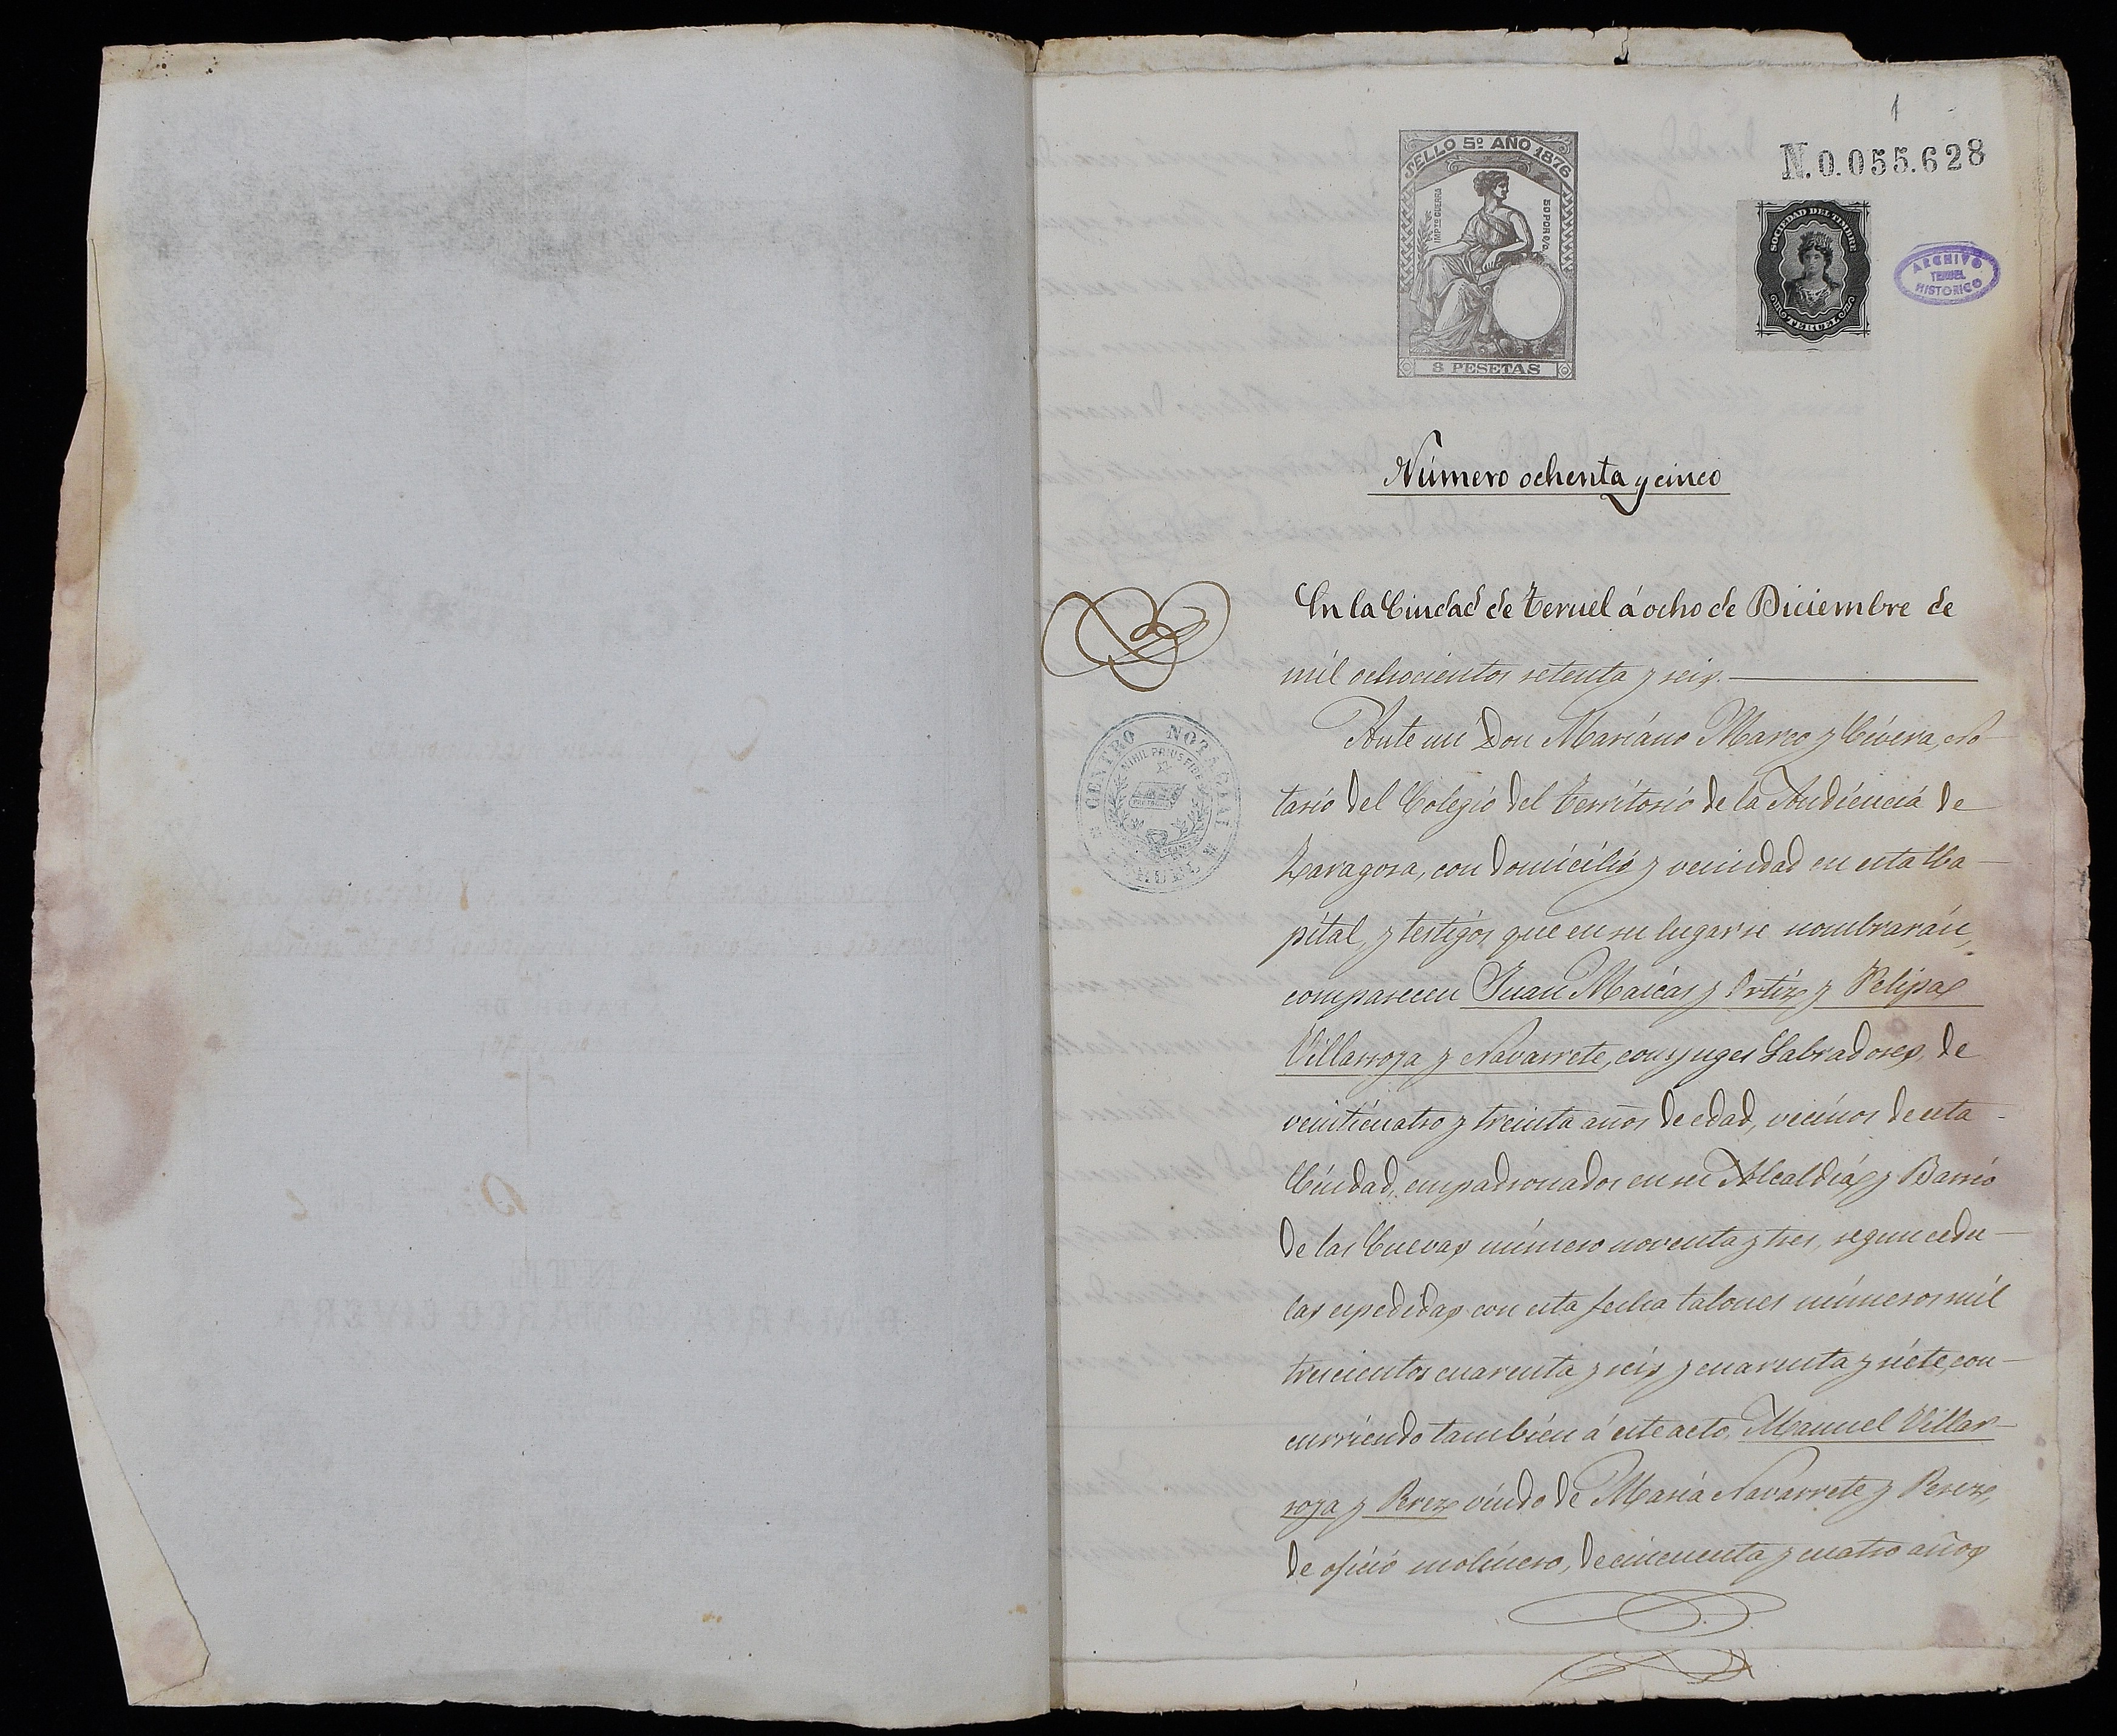 1
SELLO 5º AÑO 1876
N.0.055.628
IMPTO GUERRA
50 POR 0/0
SOCIEDAD DEL TIMBRE
TERUEL
ARCHIVO
TERUEL
HISTORICO
8 PESETAS
Número ochenta y cinco
En la Ciudad de Teruel á ocho de Diciembre de
mil ochocientos setenta y seis.
Ante mi Don Mariano Marco y Civera, No
tario del Colegio del territorio de la Audiencia de
Zaragoza, con domicilio y vecindad en esta Ca-
pital, y testigos que en su lugar se nombrarán,
comparecen Juan Maicas y Ortiz y Felipa
Villarroya y Navarrete, conyuges Labradores, de
veinticuatro y treinta años de edad, vecinos de esta
Ciudad, empadronados en su Alcaldia y Barrio
de las Cuevas número noventa y tres, segun cedu-
las espedidas con esta fecha talones números mil
trescientos cuarenta y seis y cuarenta y siete, con-
curriendo también á este acto, Manuel Villar-
roya y Perez viudo de Maria Navarrete y Perez,
de oficio molinero, de cincuenta y cuatro años
CENTRO NOTARIAL
NIHIL PRIUS FIDE
TERUEL